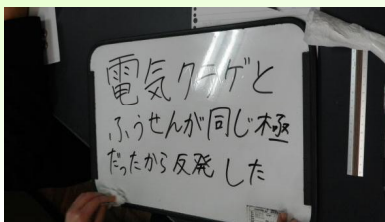 電気クラゲと
ふうせんが同じ極
だったから反発した